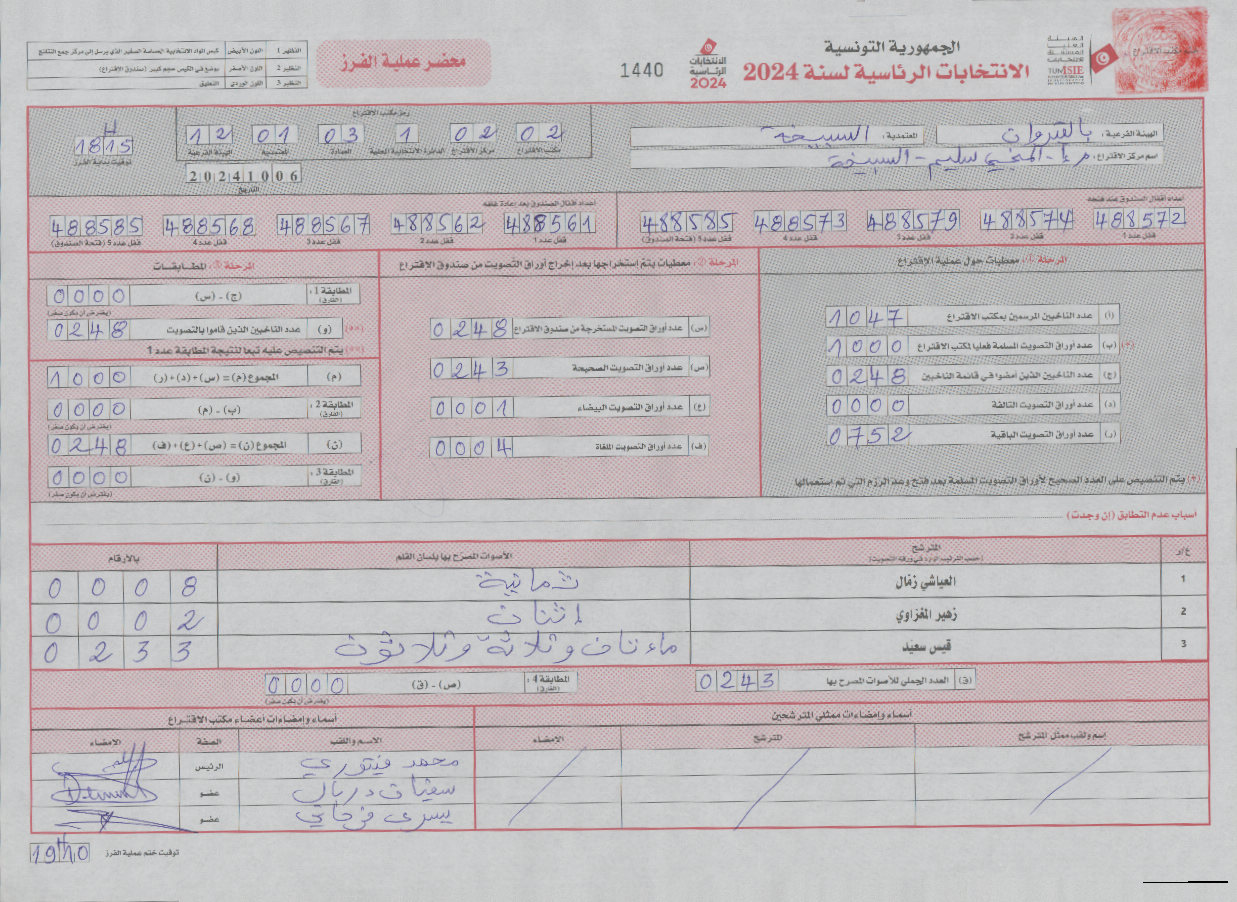 الجمهورية التونسية
الانتخابات الرئاسية لسنة 2024
الهيئة
العليا
المستقلة
للانتخابات
ISIE
الانتخابات
الرئاسية
2024
1440
محضر عملية الفرز
النظير 1 اللون الأبيض كيس المواد الانتخابية الحساسة الصغير الذي يرسل إلى مركز جمع النتائج
النظير 2 اللون الأصفر يوضع في الكيس حجم كبير (صندوق الاقتراع)
النظير 3 اللون الوردي التعليق
الهيئة الفرعية : بالقيروان
المعتمدية : السبيخة
اسم مركز الاقتراع : م إ - المنجي سليم - السبيخة
رمز مكتب الاقتراع
02 02 1 03 01 12
مكتب الاقتراع مركز الاقتراع الدائرة الانتخابية المحلية العمادة المعتمدية الهيئة الفرعية
20241006
التاريخ
18H15
توقيت بداية الفرز
أعداد أقفال الصندوق عند فتحه
488572 488574 488579 488573 488585
قفل عدد 1 قفل عدد 2 قفل عدد 3 قفل عدد 4 قفل عدد 5 (فتحة الصندوق)
أعداد أقفال الصندوق بعد إعادة غلقه
488561 488562 488567 488568 488585
قفل عدد 1 قفل عدد 2 قفل عدد 3 قفل عدد 4 قفل عدد 5 (فتحة الصندوق)
المرحلة ①: معطيات حول عملية الاقتراع
(أ) عدد الناخبين المرسمين بمكتب الاقتراع 1047
(*) (ب) عدد أوراق التصويت المسلمة فعليا لمكتب الاقتراع 1000
(ج) عدد الناخبين الذين أمضوا في قائمة الناخبين 0248
(د) عدد أوراق التصويت التالفة 0000
(ر) عدد أوراق التصويت الباقية 0752
(*) يتم التنصيص على العدد الصحيح لأوراق التصويت المسلمة بعد فتح وعد الرزم التي تم استعمالها
المرحلة ②: معطيات يتم إستخراجها بعد إخراج أوراق التصويت من صندوق الاقتراع
(س) عدد أوراق التصويت المستخرجة من صندوق الاقتراع 0248
(ص) عدد أوراق التصويت الصحيحة 0243
(ع) عدد أوراق التصويت البيضاء 0001
(ف) عدد أوراق التصويت الملغاة 0004
المرحلة ③: المطابقات
المطابقة 1 : (الفارق) (ج) - (س) 0000
(يفترض أن يكون صفر)
(**) (و) عدد الناخبين الذين قاموا بالتصويت 0248
(**) يتم التنصيص عليه تبعا لنتيجة المطابقة عدد 1
(م) المجموع (م) = (س) + (د) + (ر) 1000
المطابقة 2 : (الفارق) (ب) - (م) 0000
(يفترض أن يكون صفر)
(ن) المجموع (ن) = (ص) + (ع) + (ف) 0248
المطابقة 3 : (الفارق) (و) - (ن) 0000
(يفترض أن يكون صفر)
اسباب عدم التطابق (إن وجدت)
ع/ر المترشح الأصوات المصرح بها بلسان القلم بالأرقام
(حسب الترتيب الوارد في ورقة التصويت)
1 العياشي زمّال ثمانية 0008
2 زهير المغزاوي اثنان 0002
3 قيس سعيّد مائتان وثلاثة وثلاثون 0233
(ق) العدد الجملي للأصوات المصرح بها 0243
المطابقة 4 : (الفارق) (ص) - (ق) 0000
(يفترض أن يكون صفر)
أسماء وإمضاءات ممثلي المترشحين
إسم ولقب ممثل المترشح المترشح الامضاء
أسماء وإمضاءات أعضاء مكتب الاقتراع
الاسم واللقب الصفة الامضاء
محمد الرئيس
سفيان دربال عضو
يسرى فرجاني عضو
توقيت ختم عملية الفرز 19H10